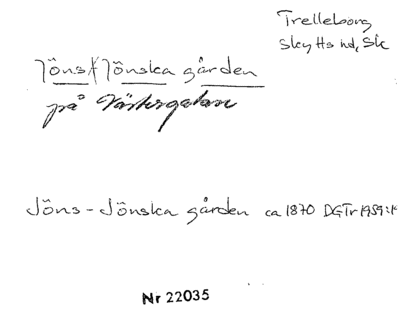 Trelleborg
Skytts hd, Sk
Jöns/Jönska gården
på Västergatan
Jöns-Jönska gården ca 1870 DGTr 1959:1
Nr 22035